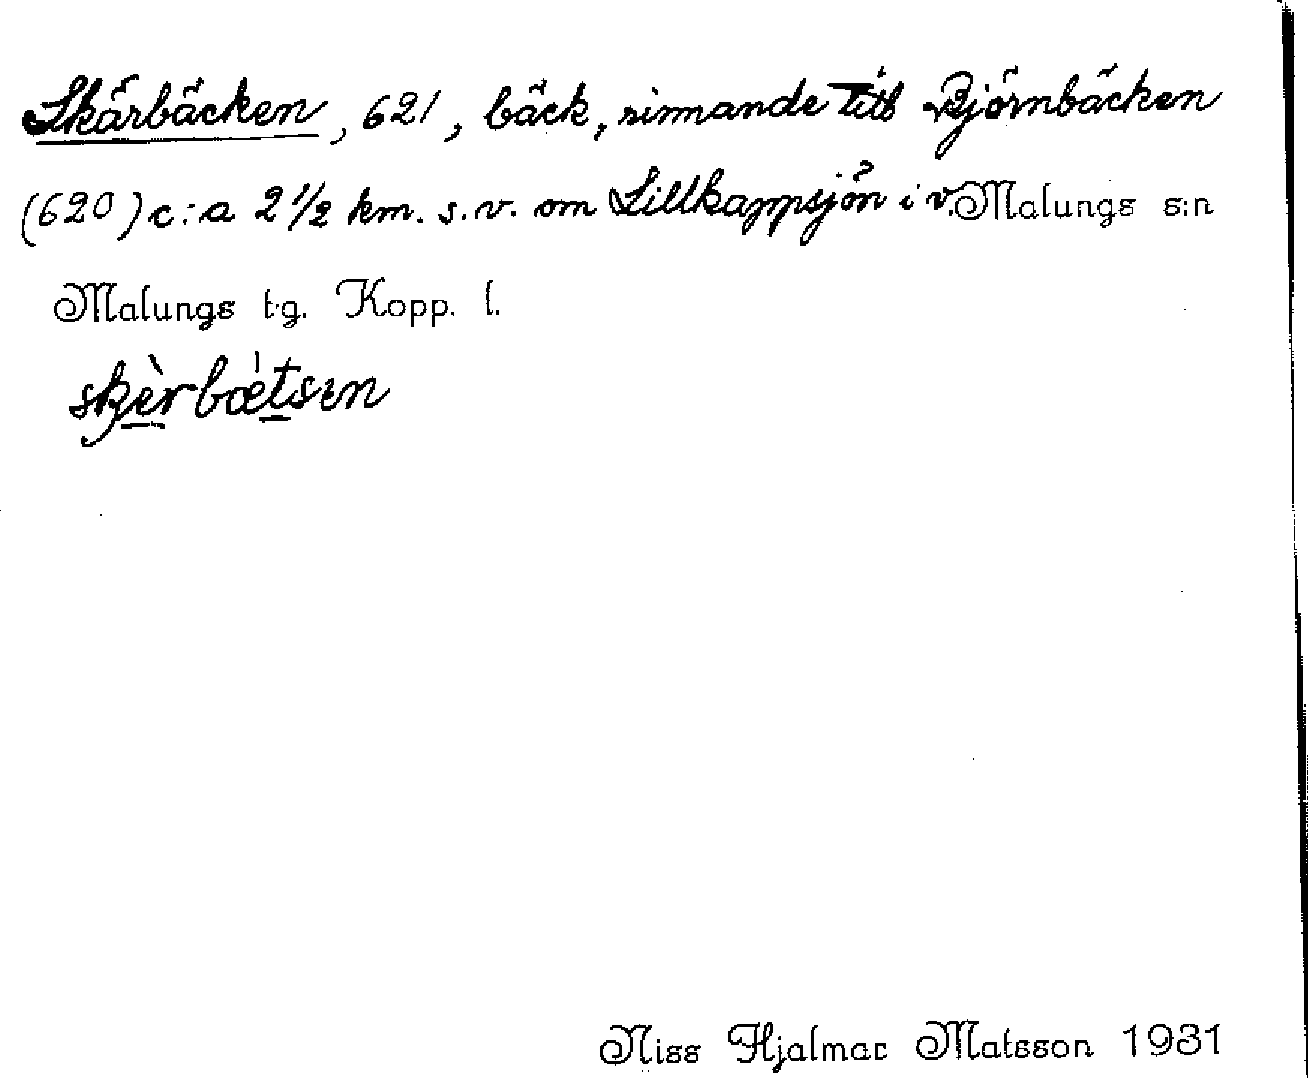 Skärbäcken, 621, bäck, rinnande till Björnbäcken
(620) c:a 2 1/2 km. s.v. om Lillkappsjön i v. Malungs s:n
Malungs t.g. Kopp. l.
skèrbǽtsın
Niss Hjalmar Matsson 1931